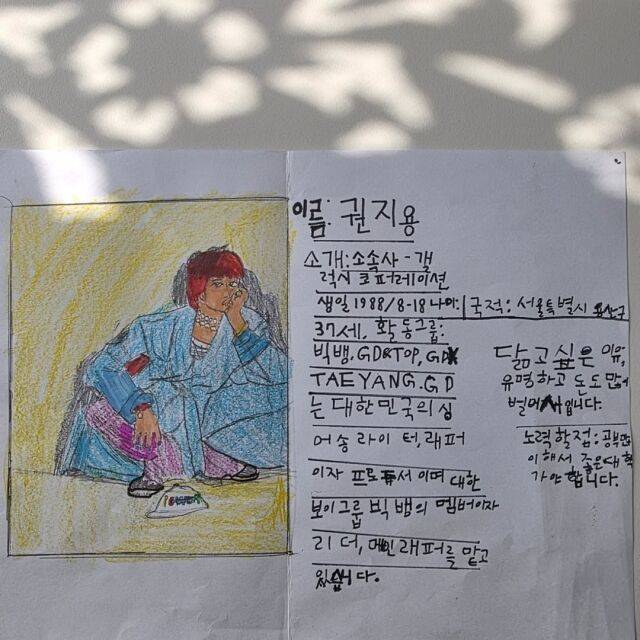 이름: 권지용
소개:소속사-갤
럭시 코퍼레이션
생일 1988/8-18 나이:
37세, 활동그룹:
빅뱅, GD&TOP, GDX
TAEYANG, GD
는 대한민국의 싱
어송라이터,래퍼
이자 프로듀서 이며 대한
보이그룹 빅뱅의 멤버이자
리더, 메인래퍼를 맡고
있습니다.
국적: 서울특별시 용산구
닮고싶은 이유,
유명하고 돈도 많이
벌어서입니다.
노력할점: 공부
이해서 좋은대학
가야합니다.